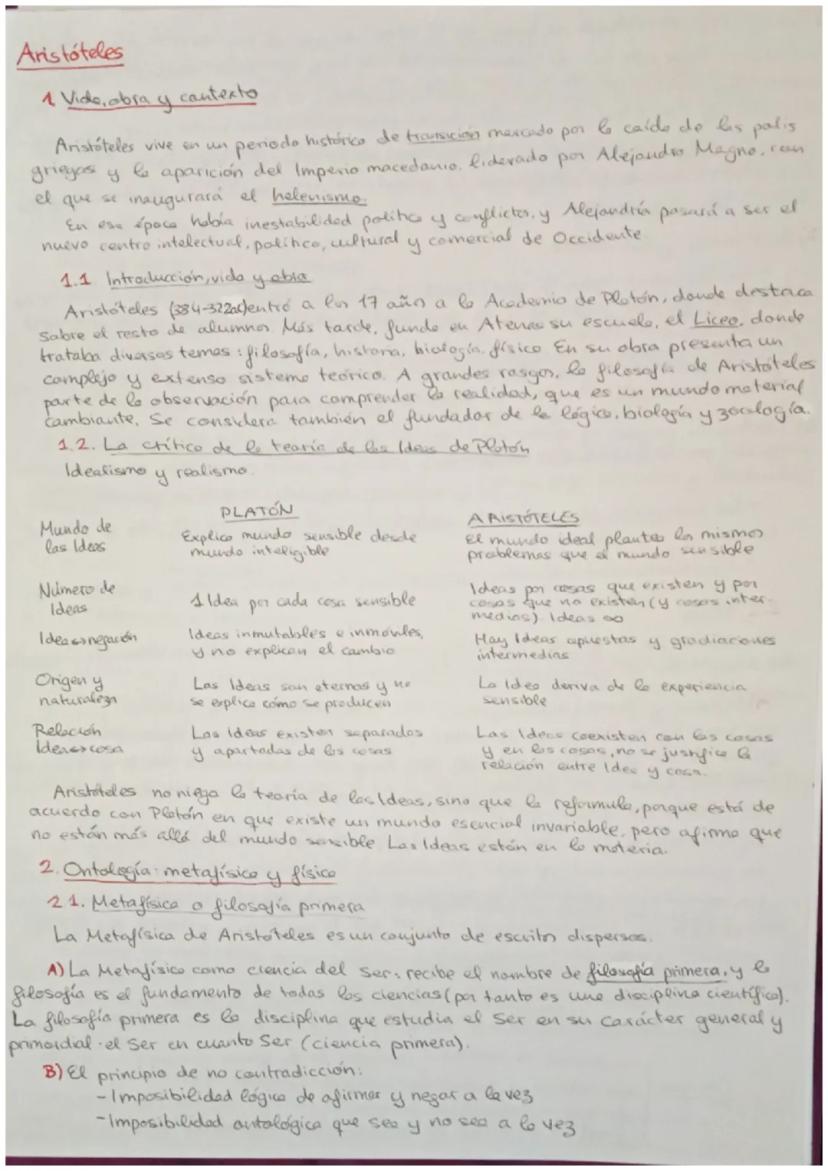 Aristóteles
1 Vida, obra y contexto
Aristóteles vive en un periodo histórico de transición marcado por la caída de las polis
griegas y la aparición del Imperio macedonio, liderado por Alejandro Magno, con
el que se inaugurará el helenismo.
En esa época había inestabilidad política y conflictos, y Alejandría pasará a ser el
nuevo centro intelectual, político, cultural y comercial de Occidente.
1.1 Introducción, vida y obra
Aristóteles (384-322ac) entró a los 17 años a la Academia de Platón, donde destaca
sobre el resto de alumnos. Más tarde, funda en Atenas su escuela, el Liceo, donde
trataba diversos temas: filosofía, historia, biología, física. En su obra presenta un
complejo y extenso sistema teórico. A grandes rasgos, la filosofía de Aristóteles
parte de la observación para comprender la realidad, que es un mundo material
cambiante. Se considera también el fundador de la lógica, biología y zoología.
1.2. La crítica de la teoría de las Ideas de Platón
Idealismo y realismo.
PLATÓN
ARISTÓTELES
Mundo de
las Ideas
Explica mundo sensible desde
mundo inteligible
El mundo ideal plantea los mismos
problemas que el mundo sensible
Número de
Ideas
1 Idea por cada cosa sensible
Ideas por cosas que existen y por
cosas que no existen (y cosas inter-
medias). Ideas ∞
Ideas↔negación
Ideas inmutables e inmóviles,
y no explican el cambio
Hay Ideas opuestas y gradiaciones
intermedias
Origen y
naturaleza
Las Ideas son eternas y no
se explica cómo se producen
La Idea deriva de la experiencia
sensible
Relación
Idea↔cosa
Las Ideas existen separadas
y apartadas de las cosas
Las Ideas coexisten con las cosas
y en las cosas, no se justifica la
relación entre Idea y cosa.
Aristóteles no niega la teoría de las Ideas, sino que la reformula, porque está de
acuerdo con Platón en que existe un mundo esencial invariable, pero afirma que
no están más allá del mundo sensible. Las Ideas están en la materia.
2. Ontología: metafísica y física
2.1. Metafísica o filosofía primera
La Metafísica de Aristóteles es un conjunto de escritos dispersos.
A) La Metafísica como ciencia del ser: recibe el nombre de filosofía primera, y la
filosofía es el fundamento de todas las ciencias (por tanto es una disciplina científica).
La filosofía primera es la disciplina que estudia el Ser en su carácter general y
primordial: el Ser en cuanto Ser (ciencia primera).
B) El principio de no contradicción:
- Imposibilidad lógica de afirmar y negar a la vez
- Imposibilidad ontológica que sea y no sea a la vez